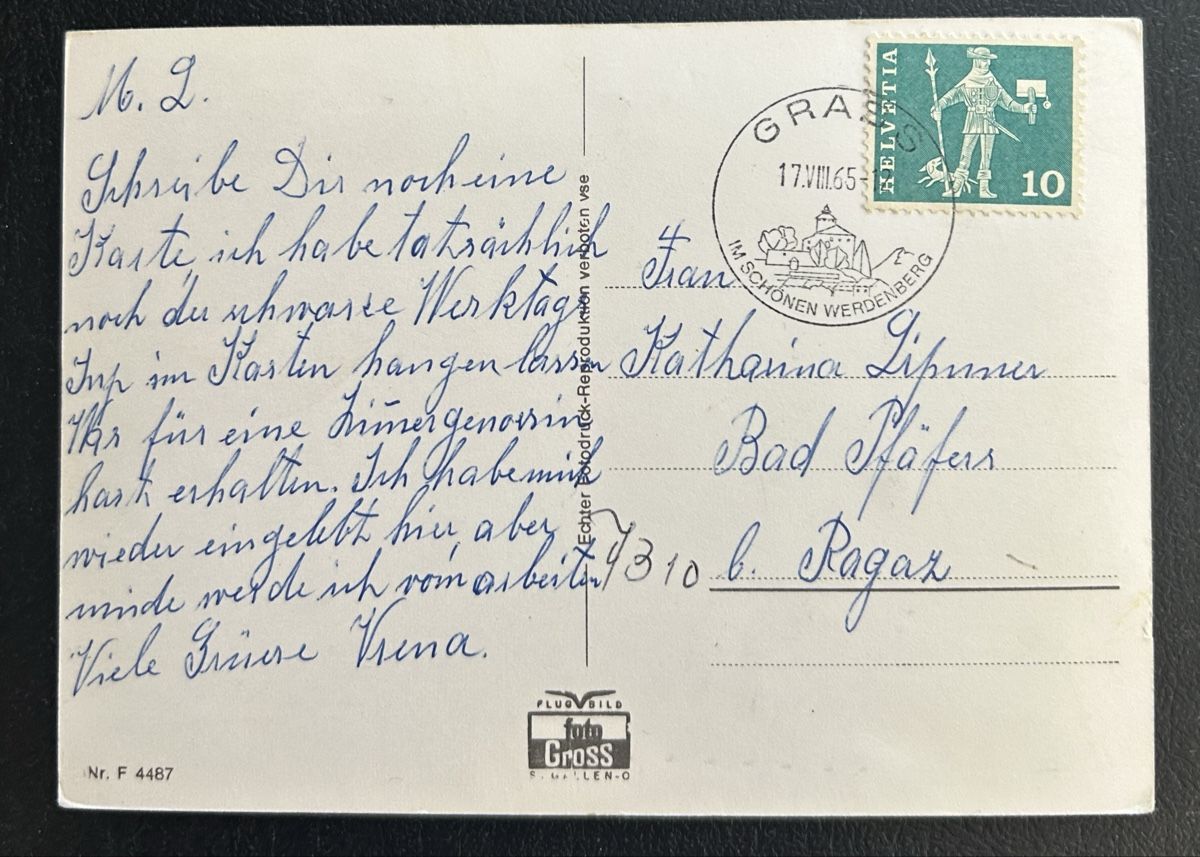 M. L.
Schreibe Dir noch eine
Karte, ich habe tatsächlich
noch der schwarze Werktag
Jup im Kasten hangen lassen
Was für eine Zimmergenossin
hast erhalten. Ich habe mich
wieder eingelebt hier, aber
müde werde ich vom arbeiten
Viele Grüsse Vrena.
Nr. F 4487
Echter Fotodruck-Reproduktion verboten vse
FLUGBILD
foto
Gross
ST. GALLEN-O
HELVETIA
10
GRABS
17.VIII.65-
IM SCHÖNEN WERDENBERG
Frau
Katharina Lippuner
Bad Pfäfers
7310 b. Ragaz